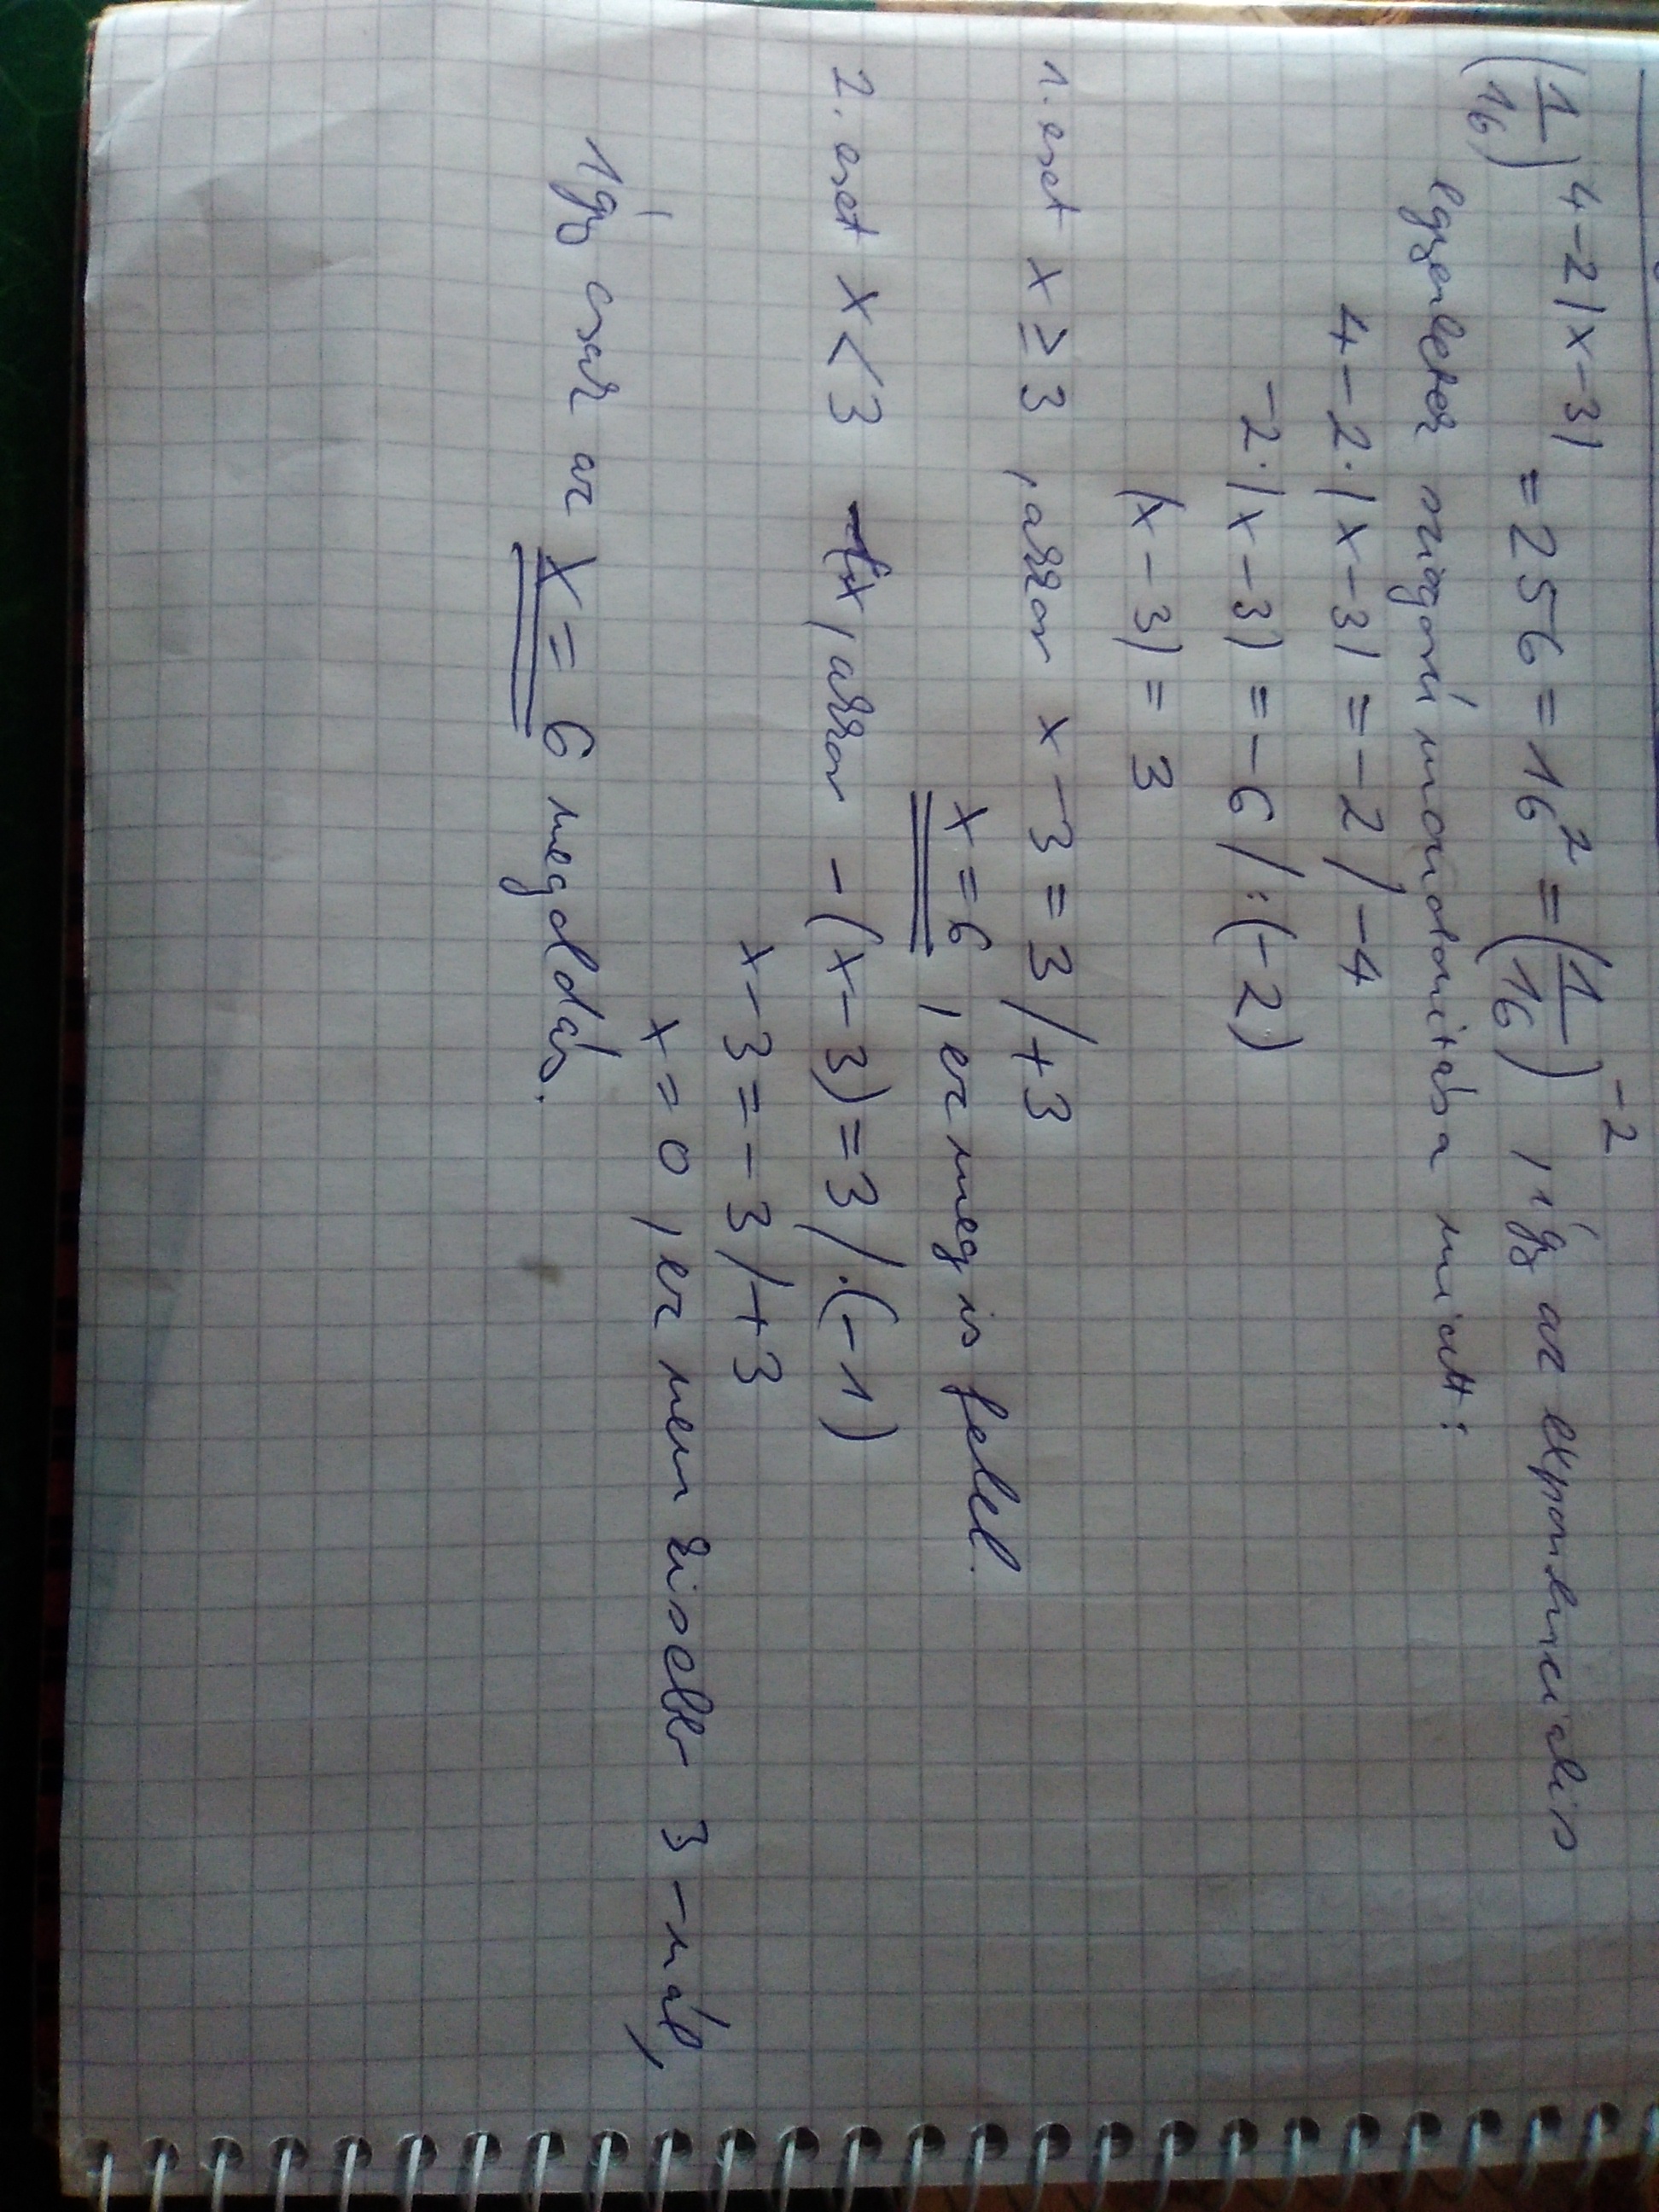 (1/16)^4-2|x-3| = 256 = 16² = (1/16)^-2, így az exponenciális
egyenletek szigorú monotonitása miatt:
4-2·|x-3| = -2 /-4
-2·|x-3| = -6 /:(-2)
|x-3| = 3
1. eset x ≥ 3, akkor x-3 = 3 /+3
x = 6, ez meg is felel.
2. eset x < 3, akkor -(x-3) = 3 /·(-1)
x-3 = -3 /+3
x = 0, ez nem kisebb 3-nál,
Így csak az x = 6 megoldás.